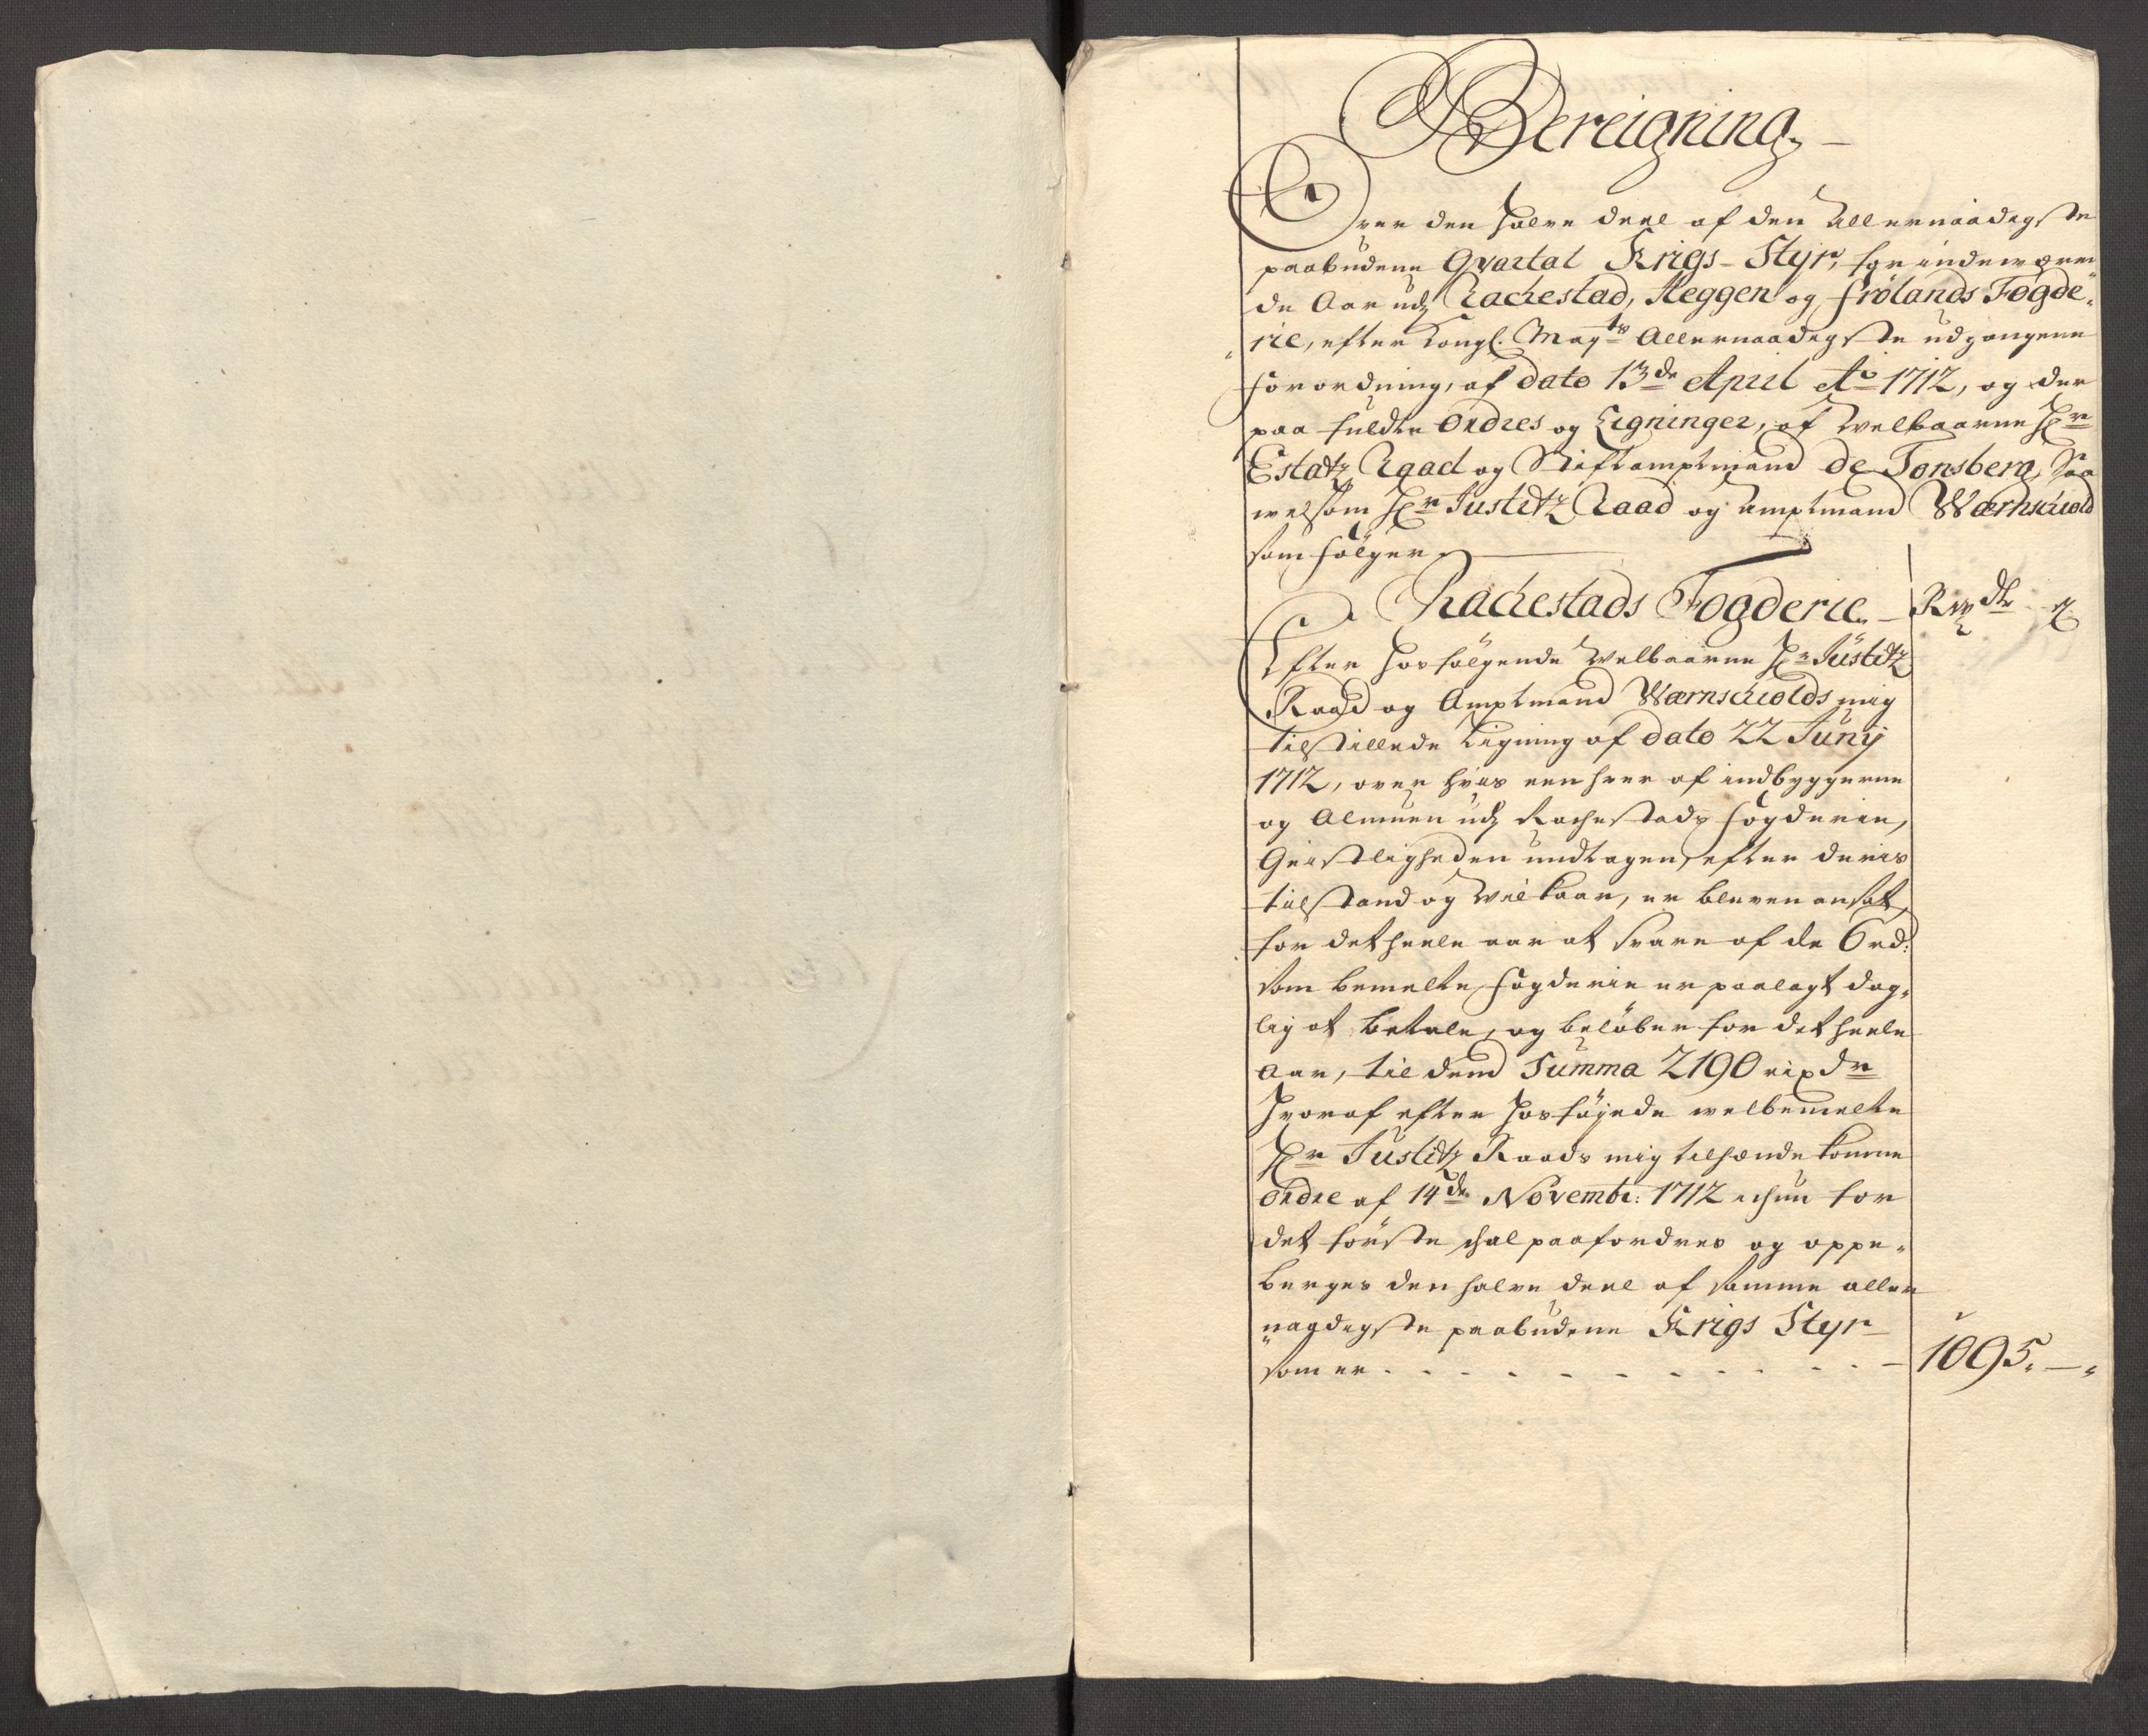 Bereigning,
Over den halve deel af den Allernaadigste
paabudene Qvartal Krigs-Styr, for indeværen
de Aar udj Rachestad, Heggen og Frölands Fogde-
rie, efter Kongl. Mayts Allernaadigste udgangene
forordning, af dato 13de April Ao 1712, og der
paa fuldte Ordres og Ligninger, af Welbaarne Hr
Estatz Raad og Stiftamptmand de Tonsberg, Saa
welsom Hr Justitz Raad og Amptmand Wærnschiold
som fölger,
Rachestads Fogderie. Rixdlr
Efter hosfölgende Welbaarne Hr Justitz
Raad og Amptmand Wærnschiolds mig
tilstillede Ligning af dato 22 Junij
1712, over hvis een hver af indbyggerne
og Almuen udj Rachestads fogderie,
Geistligheden undtagen, efter deris
tilstand og Vilkaar, er bleven ansat,
for det heele aar at svare af de 6 rd:
som bemelte fogderie er paalagt dag-
lig at betale, og belöber for det heele
Aar, til dend Summa 2190 rixdr
Hvoraf efter hosföyede welbemelte
Hr Justitz Raads mig tilhænde komne
Ordre af 14de Novembr: 1712 ichun for
det förste schal paafordres og oppe-
berges den halve deel af samme aller
naadigste paabudene Krigs Styr
som er . . . . . . . . . . . 1095. — „